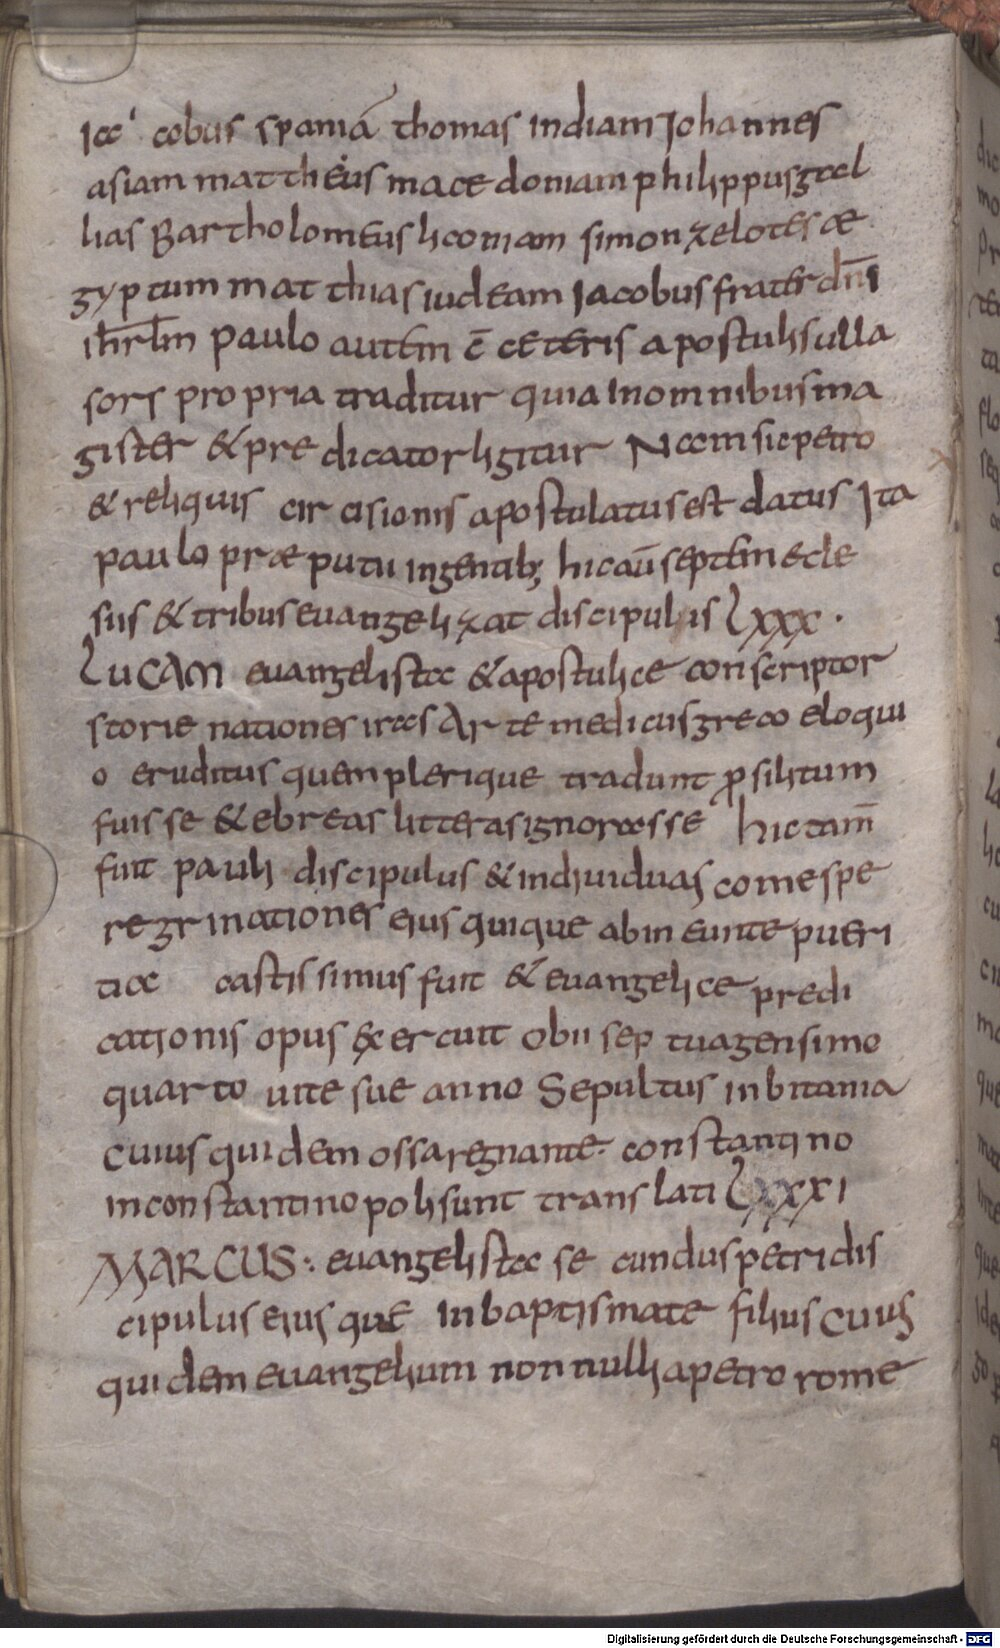 iaˈcobus spaniā thomas indiam Johannes
asiam mattheus macedoniam philippus gal
lias Bartholomeus licaoniam simon zelotes æ
gyptum matthias iudeam Iacobus frater dn̄i
ihr̄lm paulo autem c̄ ceteris apostulis ulla
sors propria traditur quia In omnibus ma
gister & predicator ligitur Nam sic petro
& reliquis circisionis apostulatus est datus Ita
paulo præputii in gentib; hic aū septem ecle
siis & tribus evangelizat discipulis Lxxx ·
LUCAM evangelista & apostulice conscriptor
storie nationes iras Arte medicus greco eloqui
o eruditus quem plerique tradunt ꝓsilitum
fuisse & ebreas litteras ignorasse hic tam̄
fuit pauli discipulus & indiuiduas comes pe
regrinationes eius quique ab ineunte pueri
tia castissimus fuit & evangelice predi
cationis opus exercuit Obii septuagensimo
quarto uite sue anno Sepultus in bitania
Cuius quidem ossa regnante · constantino
in constantinopoli sunt translati Lxxxi
MARCUS : evangelista secundus petri dis
cipulus eius que In baptismate filius Cuius
quidem evangelium nonnulli a petro rome
Digitalisierung gefördert durch die Deutsche Forschungsgemeinschaft - DFG